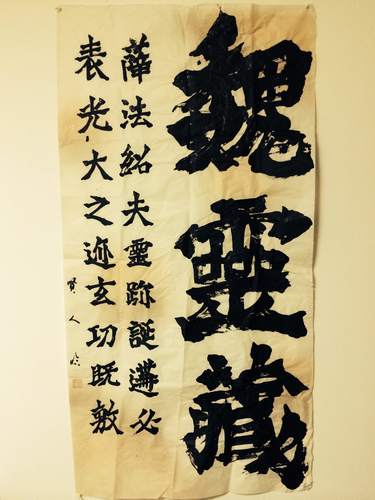 魏靈藏
薛法紹夫靈跡誕遘必
表光大之迹玄功既敷
賢人臨